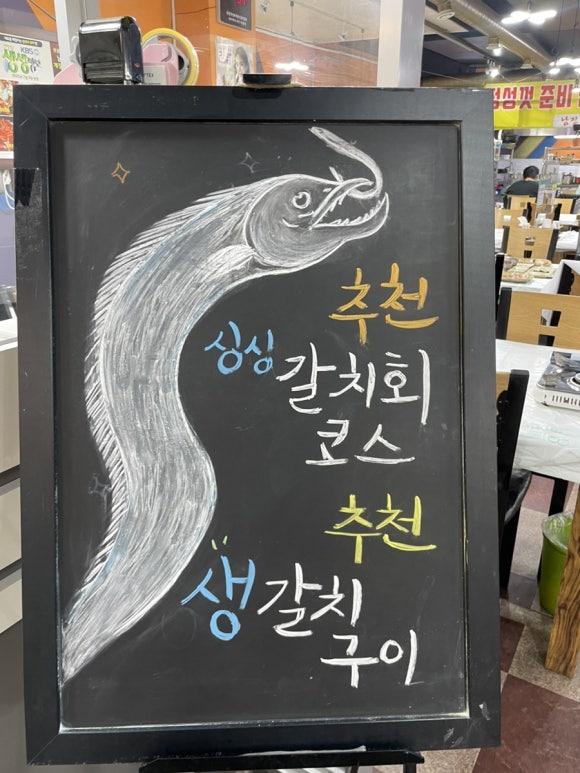 KBS
생생정보
정성껏 준비
추천
싱싱 갈치회
코스
추천
생갈치
구이